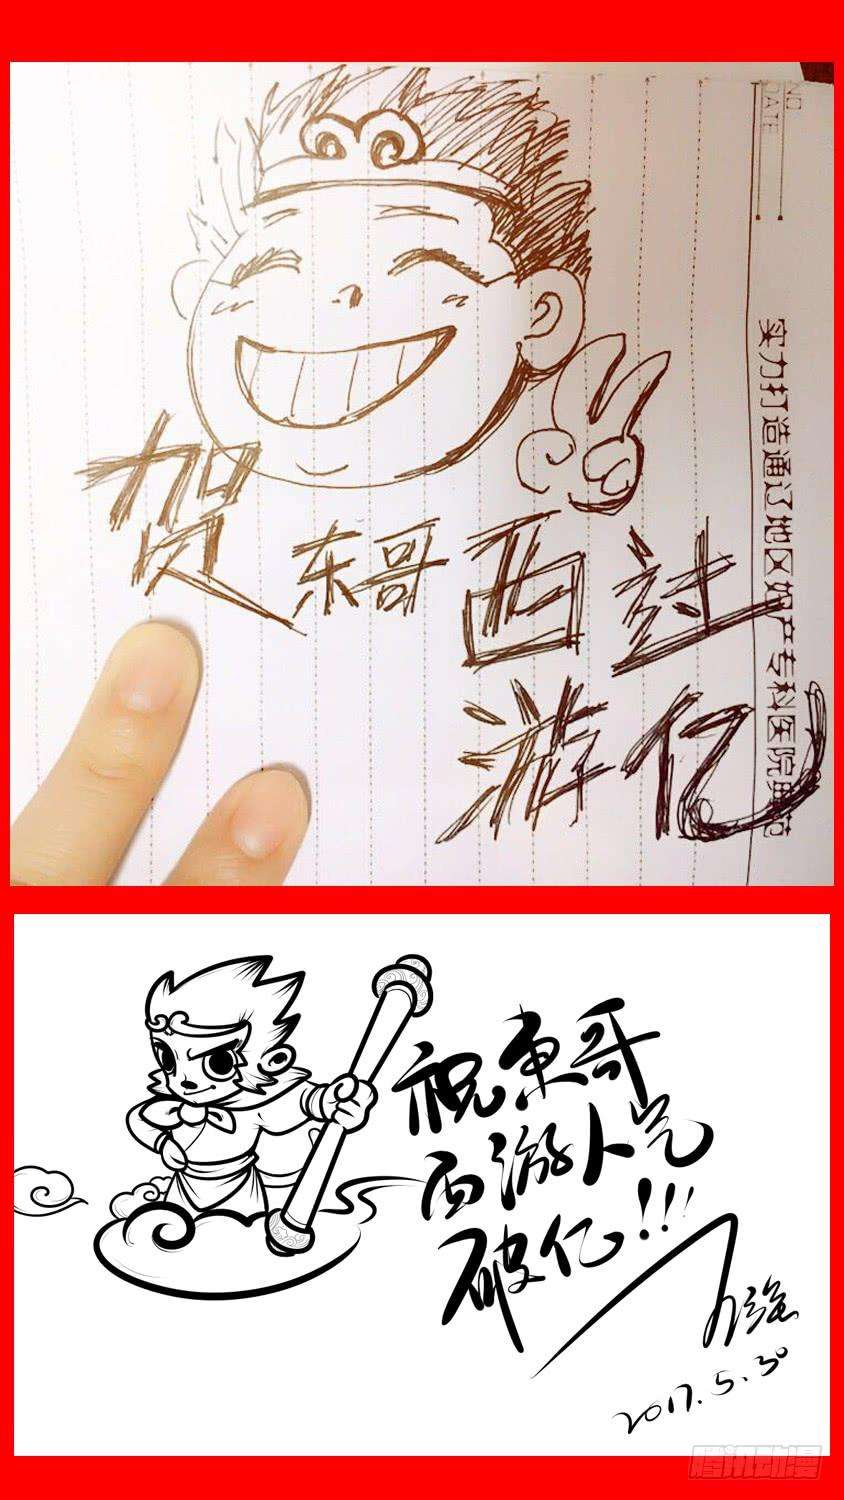 NO
DATE
实力打造通辽地区妇产专科医院典范
贺东哥西游过亿
祝東哥
西游人气
破亿!!!
2017.5.30
腾讯动漫